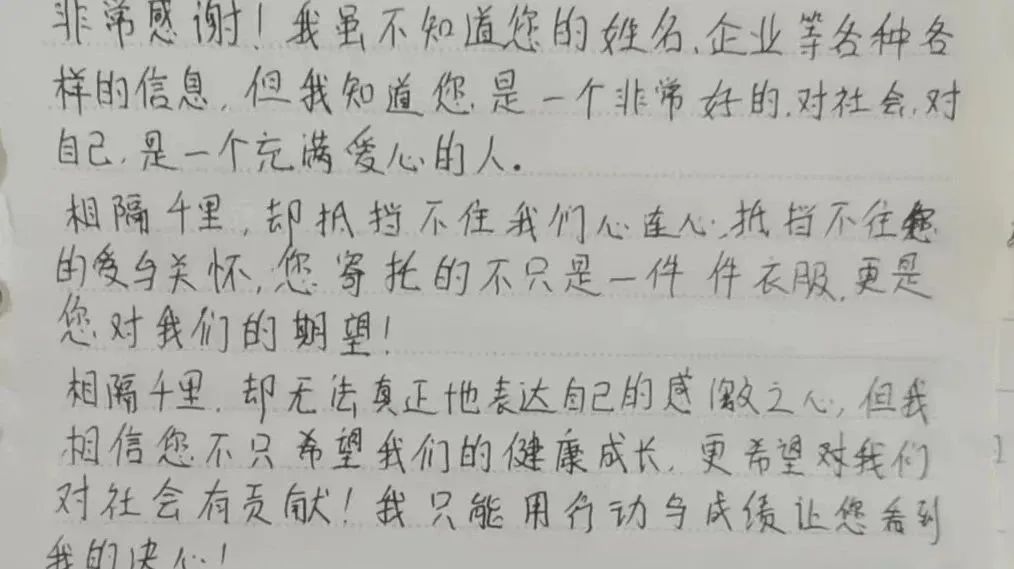 非常感谢！我虽不知道您的姓名、企业等各种各
样的信息，但我知道您是一个非常好的，对社会，对
自己，是一个充满爱心的人。
相隔千里，却抵挡不住我们心连心，抵挡不住您
的爱与关怀，您寄托的不只是一件件衣服，更是
您对我们的期望！
相隔千里，却无法真正地表达自己的感激之心，但我
相信您不只希望我们的健康成长，更希望对我们
对社会有贡献！我只能用行动与成绩让您看到
我的决心！